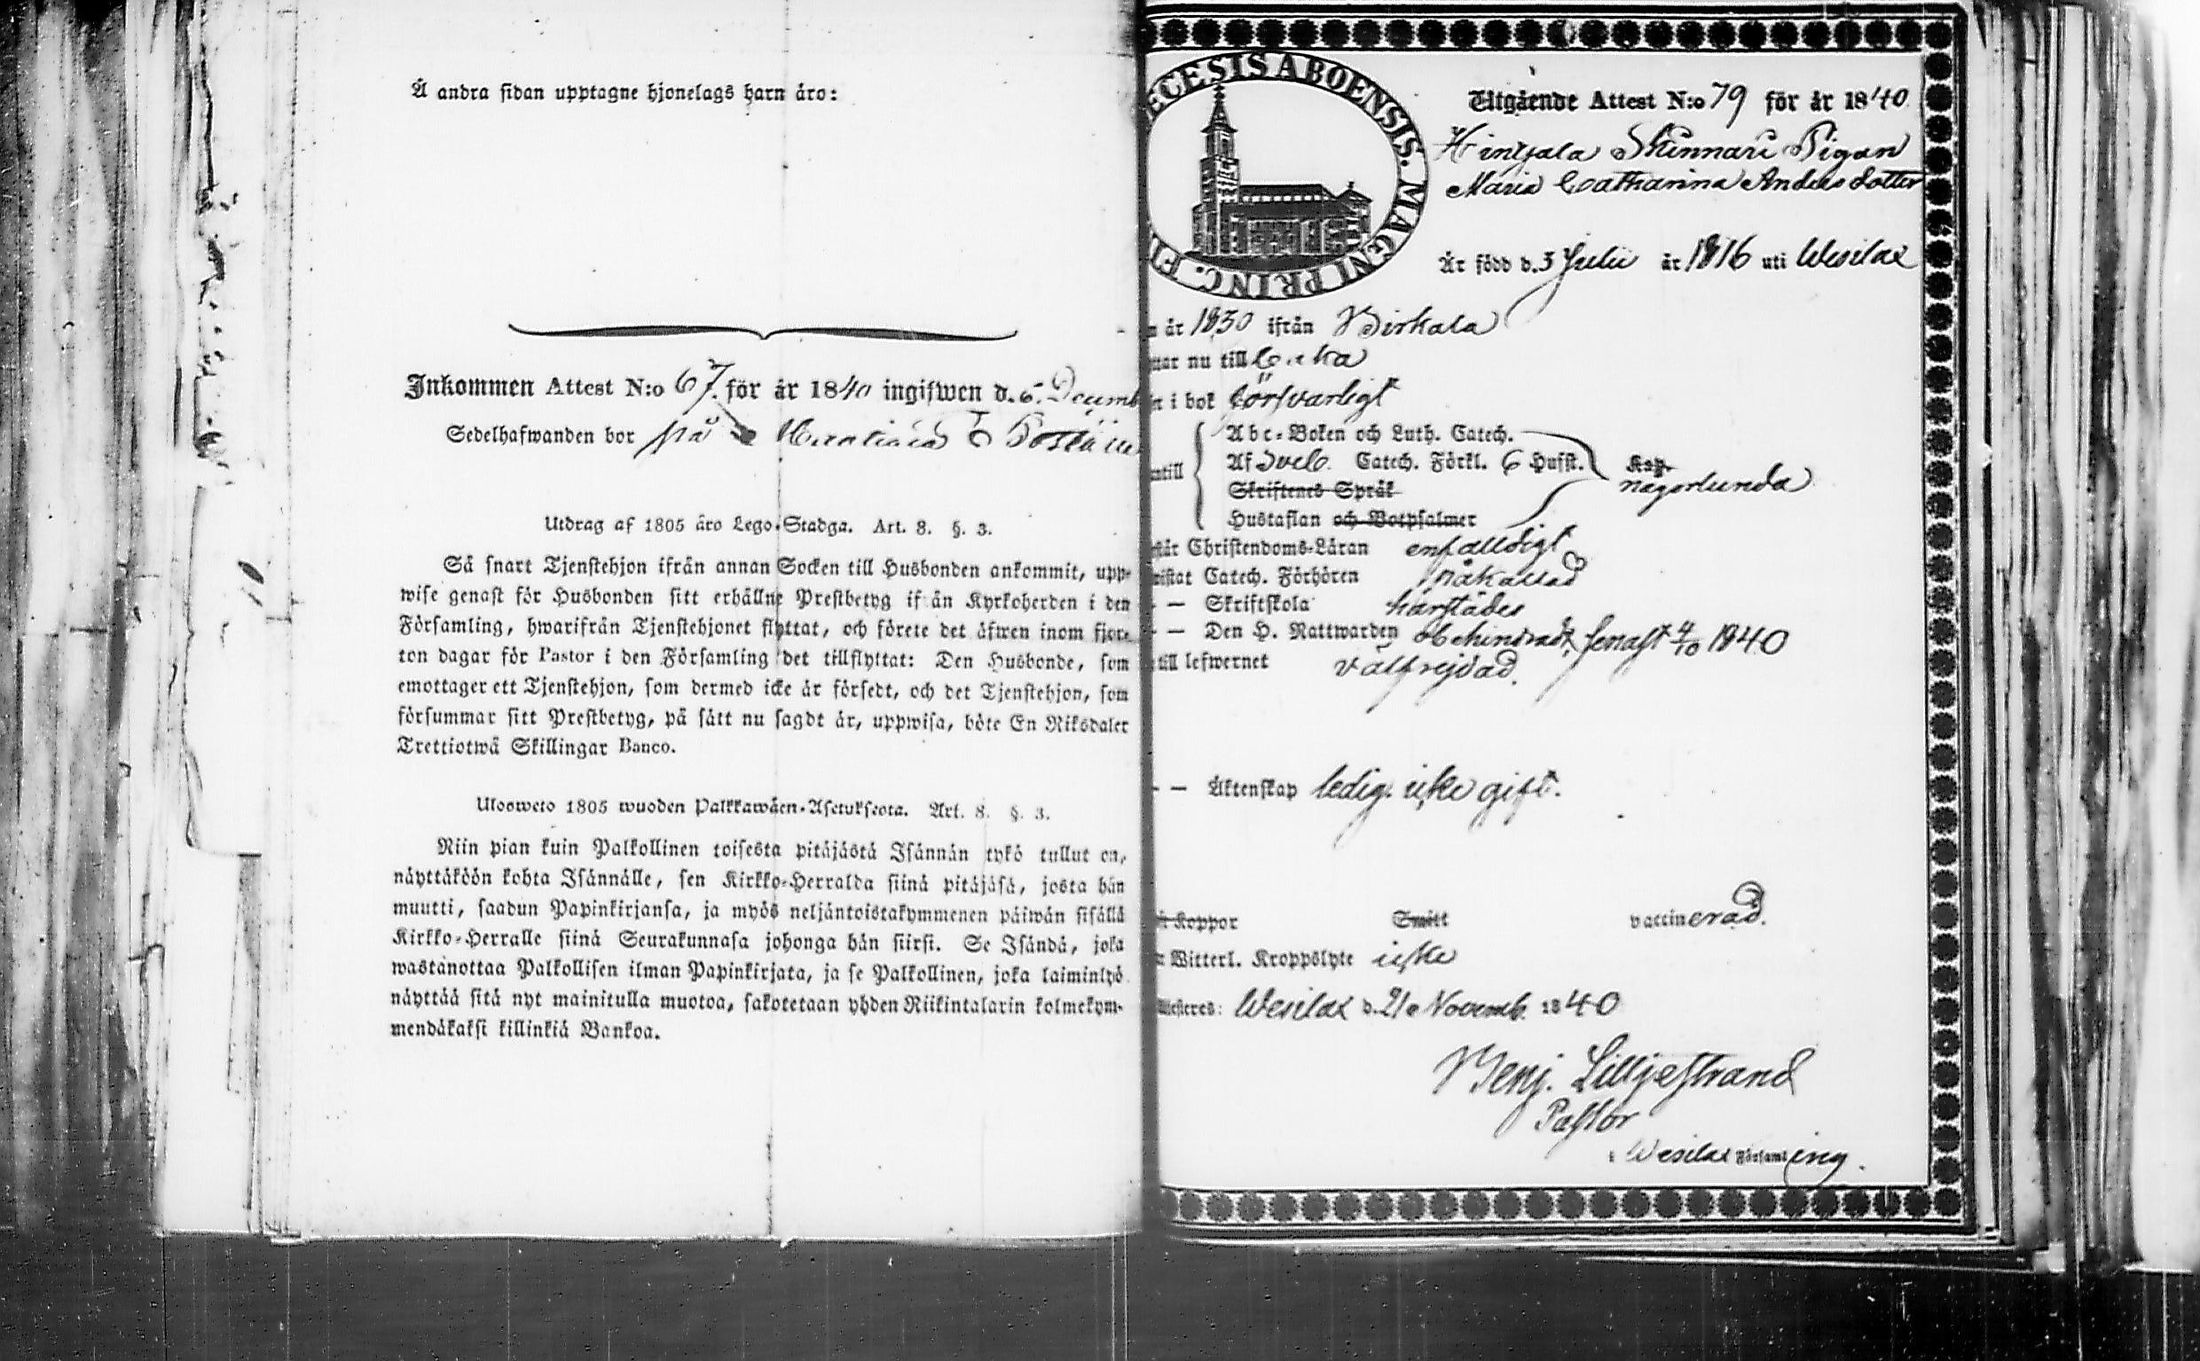 Å andra sidan upptagne hjonelags barn äro:
Inkommen Attest N:o 67. för år 1840 ingifwen d. 6. Decemb
Sedelhafwanden bor på
Utdrag af 1805 års Lego-Stadga. Art. 8. §. 3.
Så snart Tjenstehjon ifrån annan Socken till Husbonden ankommit, upp-
wise genast för Husbonden sitt erhållne Prestbetyg if ån Kyrkoherden i den
Församling, hwarifrån Tjenstehjonet flyttat, och förete det äfwen inom fjor-
ton dagar för Pastor i den Församling det tillflyttat: Den Husbonde, som
emottager ett Tjenstehjon, som dermed icke är försedt, och det Tjenstehjon, som
försummar sitt Prestbetyg, på sätt nu sagdt är, uppwisa, böte En Riksdaler
Trettiotwå Skillingar Banco.
Ulosweto 1805 wuoden Palkkawäen-Asetuksesta. Art. 8. §. 3.
Niin pian kuin Palkollinen toisesta pitäjästä Isännän tykö tullut on,
näyttäköön kohta Isännälle, sen Kirkko-Herralda siinä pitäjäsä, josta hän
muutti, saadun Papinkirjansa, ja myös neljäntoistakymmenen päiwän sisällä
Kirkko-Herralle siinä Seurakunnasa johonga hän siirsi. Se Isändä, joka
wastanottaa Palkollisen ilman Papinkirjata, ja se Palkollinen, joka laiminlyö
näyttää sitä nyt mainitulla muotoa, sakotetaan yhden Riikintalarin kolmekym-
mendäkaksi killinkiä Bankoa.
ECESIS ABOENSIS. MAGNI PRINC. FI
Utgående Attest N:o 79 för år 1840
Hinsala Skinnari Pigan
Maria Catharina Anders dotter
Är född d. 5 Julii år 1816 uti Wesilax
n år 1830 ifrån Birkala
nar nu till
i bok försvarligt
Abc-Boken och Luth. Catech.
Af Sveb. Catech. Förkl. 6 Hufst.
Skriftenes Språk
Hustaflan och Botpsalmer
någorlunda
står Christendoms-Läran enfalldigt
wistat Catech. Förhören påkallad
- — Skriftskola härstädes
- — Den H. Nattwarden obehindradt, senast 4/10 1840
till lefwernet välfrejdad.
- — Äktenskap ledig. icke gift.
Koppor Smitt vaccinerad.
Witterl. Kroppslyte icke
Wesilax d. 21 Novemb. 1840
Benj. Lilljestrand
Pastor
i Wesilax Församling.